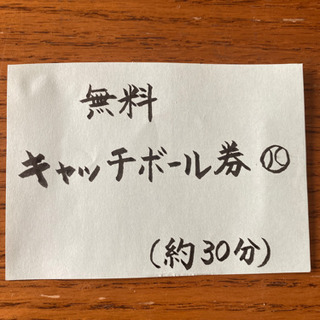 無料
キャッチボール券⚾
(約30分)